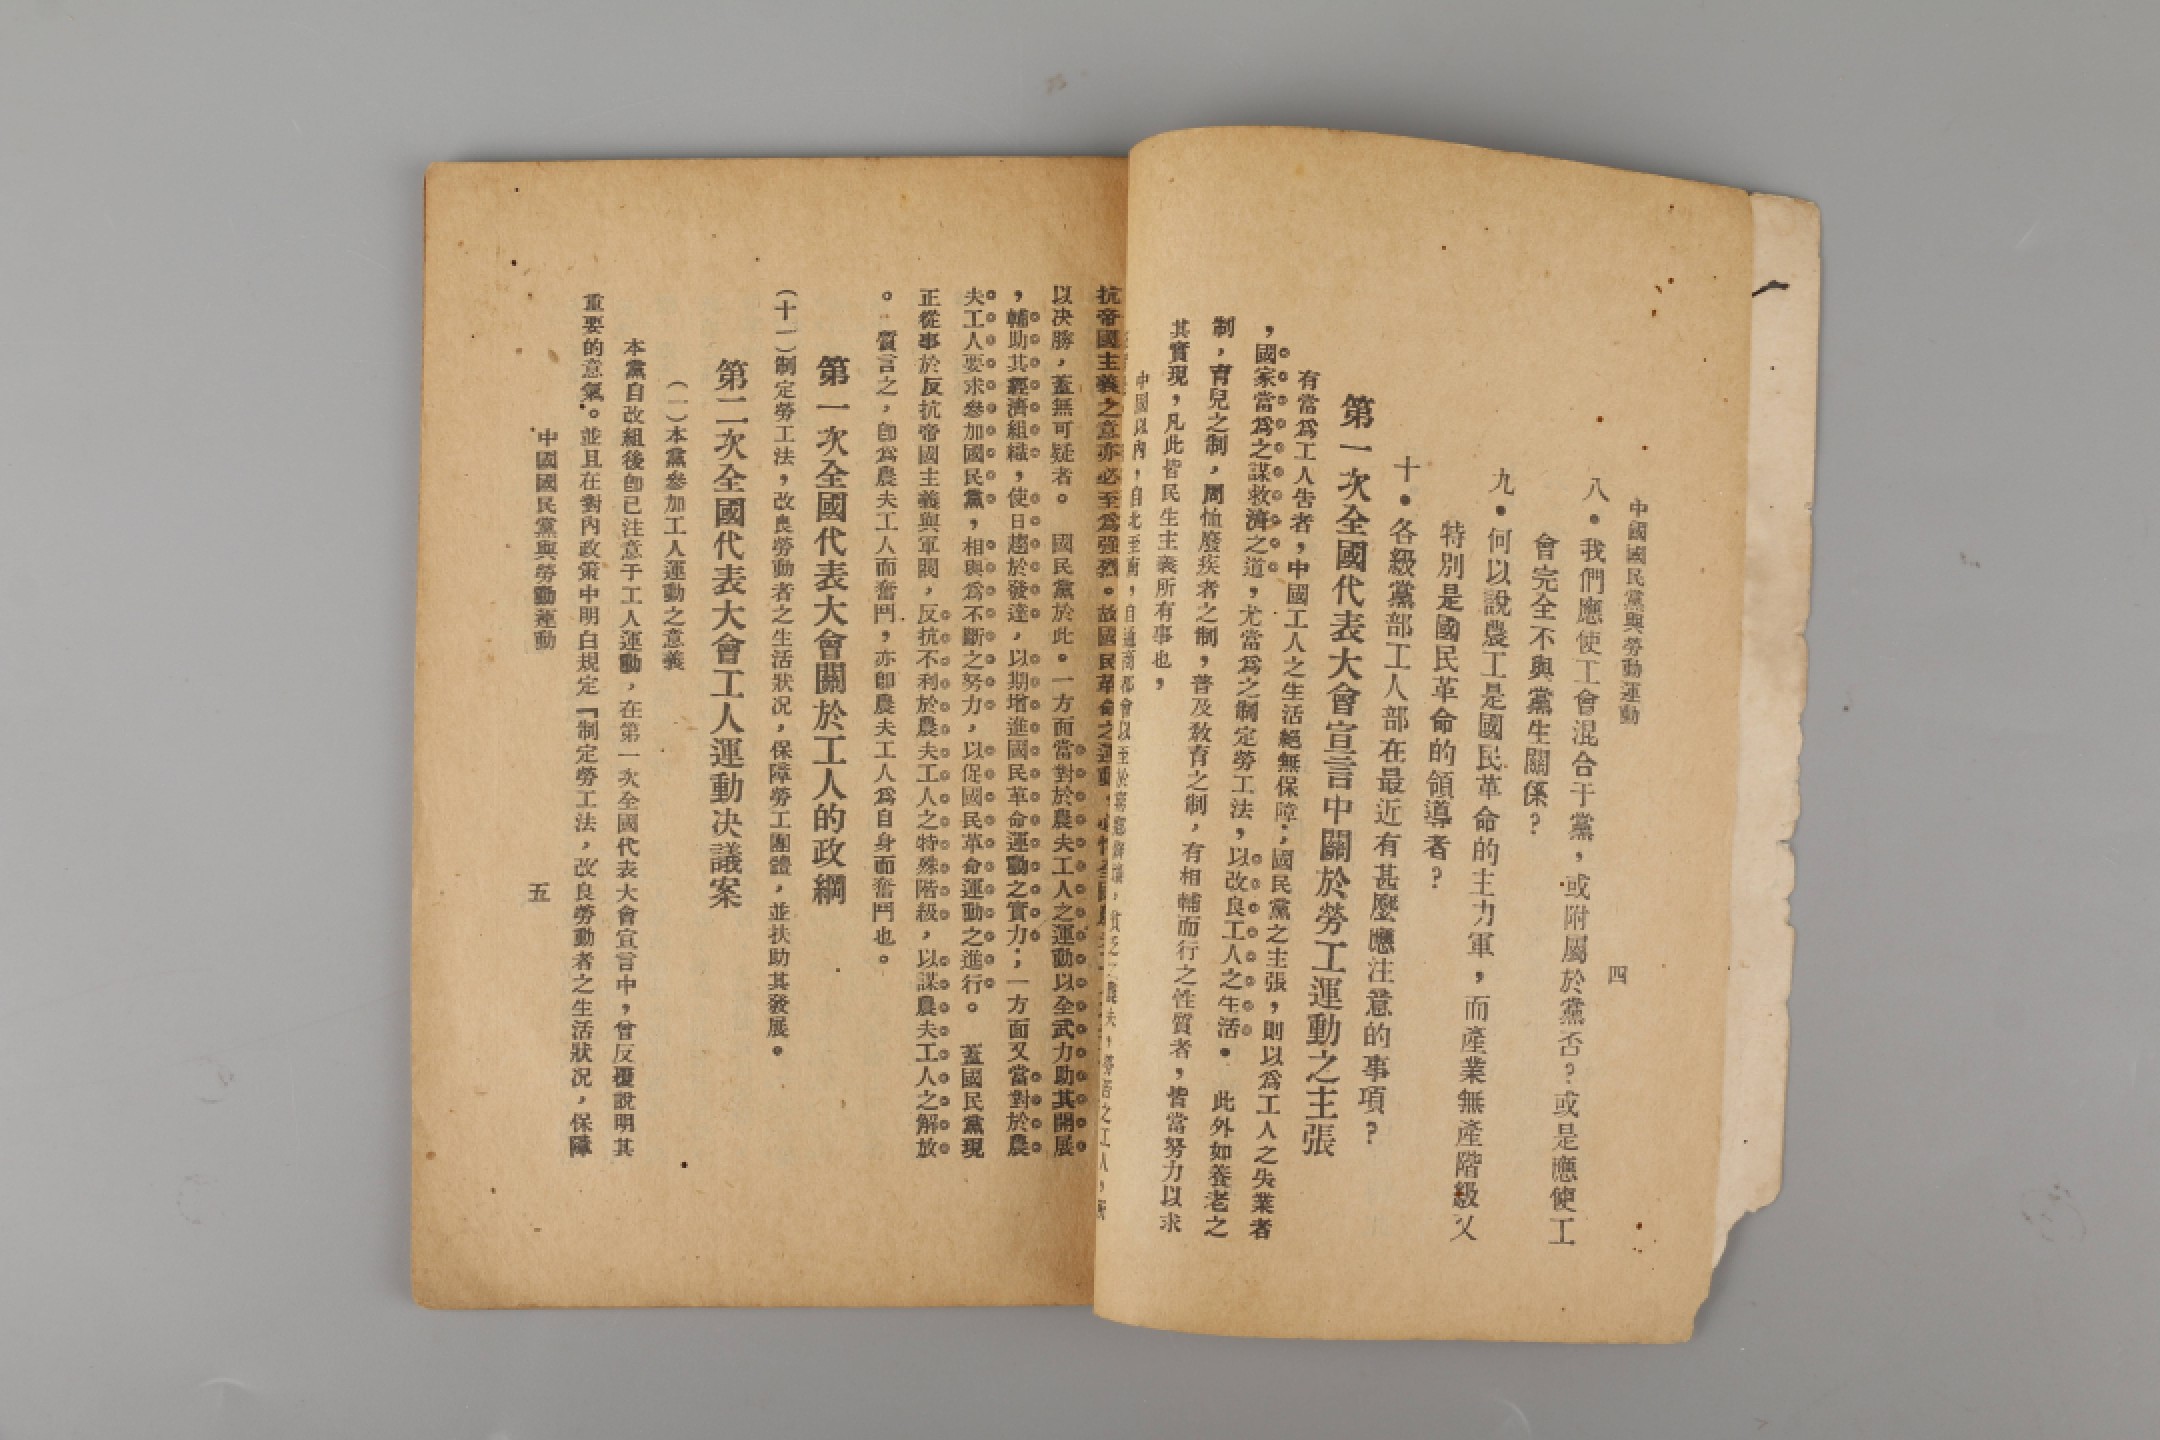 中國國民黨與勞動運動
四
八．我們應使工會混合于黨，或附屬於黨否？或是應使工
會完全不與黨生關係？
九．何以說農工是國民革命的主力軍，而產業無產階級又
特別是國民革命的領導者？
十．各級黨部工人部在最近有甚麼應注意的事項？
第一次全國代表大會宣言中關於勞工運動之主張
有當爲工人告者，中國工人之生活絕無保障；國民黨之主張，則以爲工人之失業者
，國家當爲之謀救濟之道，尤當爲之制定勞工法，以改良工人之生活．　此外如養老之
制，育兒之制，周恤廢疾者之制，普及教育之制，有相輔而行之性質者，皆當努力以求
其實現，凡此皆民生主義所有事也，
中國以內，自北至南，自通商都會以至於窮鄉僻壤，貧乏之農夫，勞苦之工人，所
抗帝國主義之意亦必至爲強烈。故國民革命之運動，必恃全國
以決勝，蓋無可疑者。　國民黨於此。一方面當對於農夫工人之運動以全武力助其開展
，輔助其經濟組織，使日趨於發達，以期增進國民革命運動之實力；一方面又當對於農
夫工人要求參加國民黨，相與爲不斷之努力，以促國民革命運動之進行。　蓋國民黨現
正從事於反抗帝國主義與軍閥，反抗不利於農夫工人之特殊階級，以謀農夫工人之解放
。　質言之，卽爲農夫工人而奮鬥，亦卽農夫工人爲自身而奮鬥也。
第一次全國代表大會關於工人的政綱
（十一）制定勞工法，改良勞動者之生活狀况，保障勞工團體，並扶助其發展。
第二次全國代表大會工人運動决議案
（一）本黨參加工人運動之意義
本黨自改組後卽已注意于工人運動，在第一次全國代表大會宣言中，曾反覆說明其
重要的意氣。並且在對內政策中明白規定「制定勞工法，改良勞動者之生活狀况，保障
中國國民黨與勞動運動
五